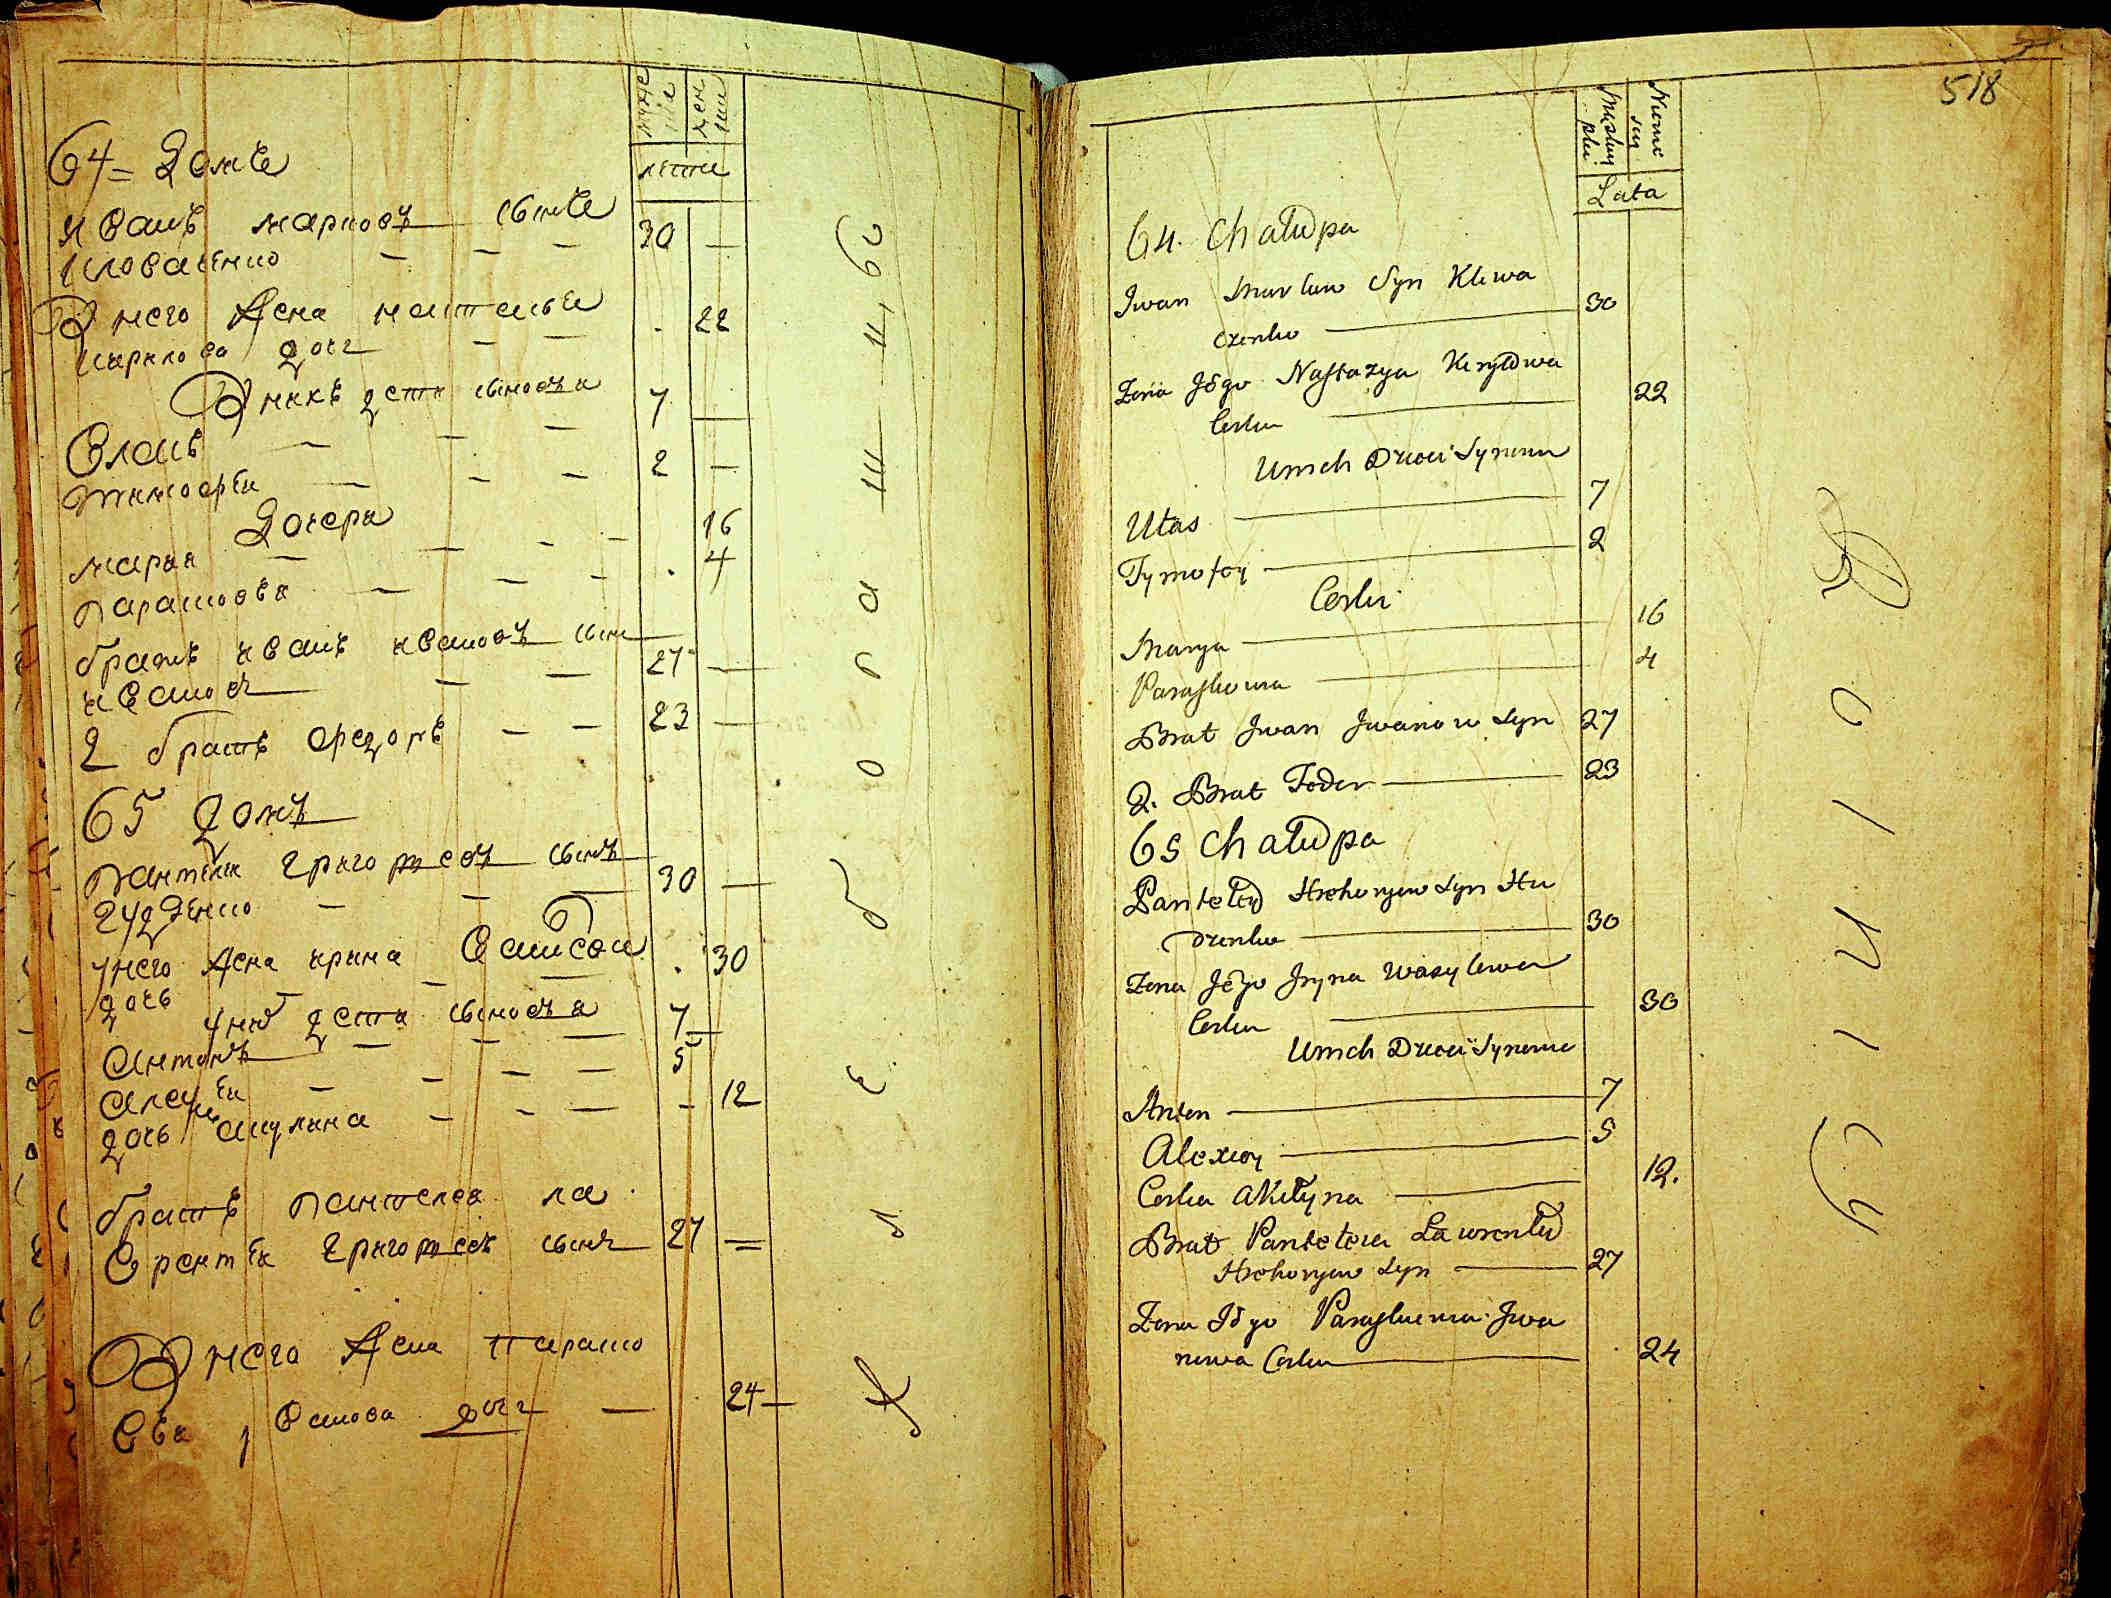 мужеска
женски
лета
64 = Домъ
Иванъ Марковъ сынъ
Кловаченко — — — 30 —
У него жена Настасья
Кирилова дочь — — . 22
У нихъ дети сыновья
Власъ — — — 7 —
Тимофеи — — — 2 —
Дочери
Марья — — — — 16
Парасковья — — — . 4
братъ Иванъ Ивановъ сын
Ивановъ — — 27 —
2 братъ Федоръ — — 23 —
65 Домъ
Пантелеи Григорьевъ сынъ
Гудзенко — — — 30 —
у него жена Ирина Василева
дочь — — . 30
у них дети сыновья
Антонъ — — — 7 —
Алексеи — — — — 5
дочь Акулина — — — - 12
братъ Пантелея Ла
врентеи Григорьевъ сынъ 27 =
У него жена Параско
вья Иванова дочь — 24 —
Хлебопашецъ
518
Męzkiey płci
Niewiesciey
Lata
64. Chałupa
Jwan Markow Syn Klewa
czenko — 30
Zona Jego Nastazya Kiryłowa
Corka — 22
U nich Dzieci Synowie
Ułas — 7
Tymofey — 2
Corki
Marya — 16
Paraskowia — 4
Brat Jwan Jwanow Syn 27
2. Brat Fedor — 23
65 Chałupa
Panteley Hrehoryew Syn Hu
dzenko — 30
Zona Jego Jryna Wasylewa
Corka — 30
U nich Dzieci Synowie
Anton — 7
Alexiey — 5
Corka Akulyna — 12.
Brat Panteleia Lawrentey
Hrehoryew Syn — 27
Zona Jego Paraskiewia Jwa
nowa Corka — 24
Rolnicy